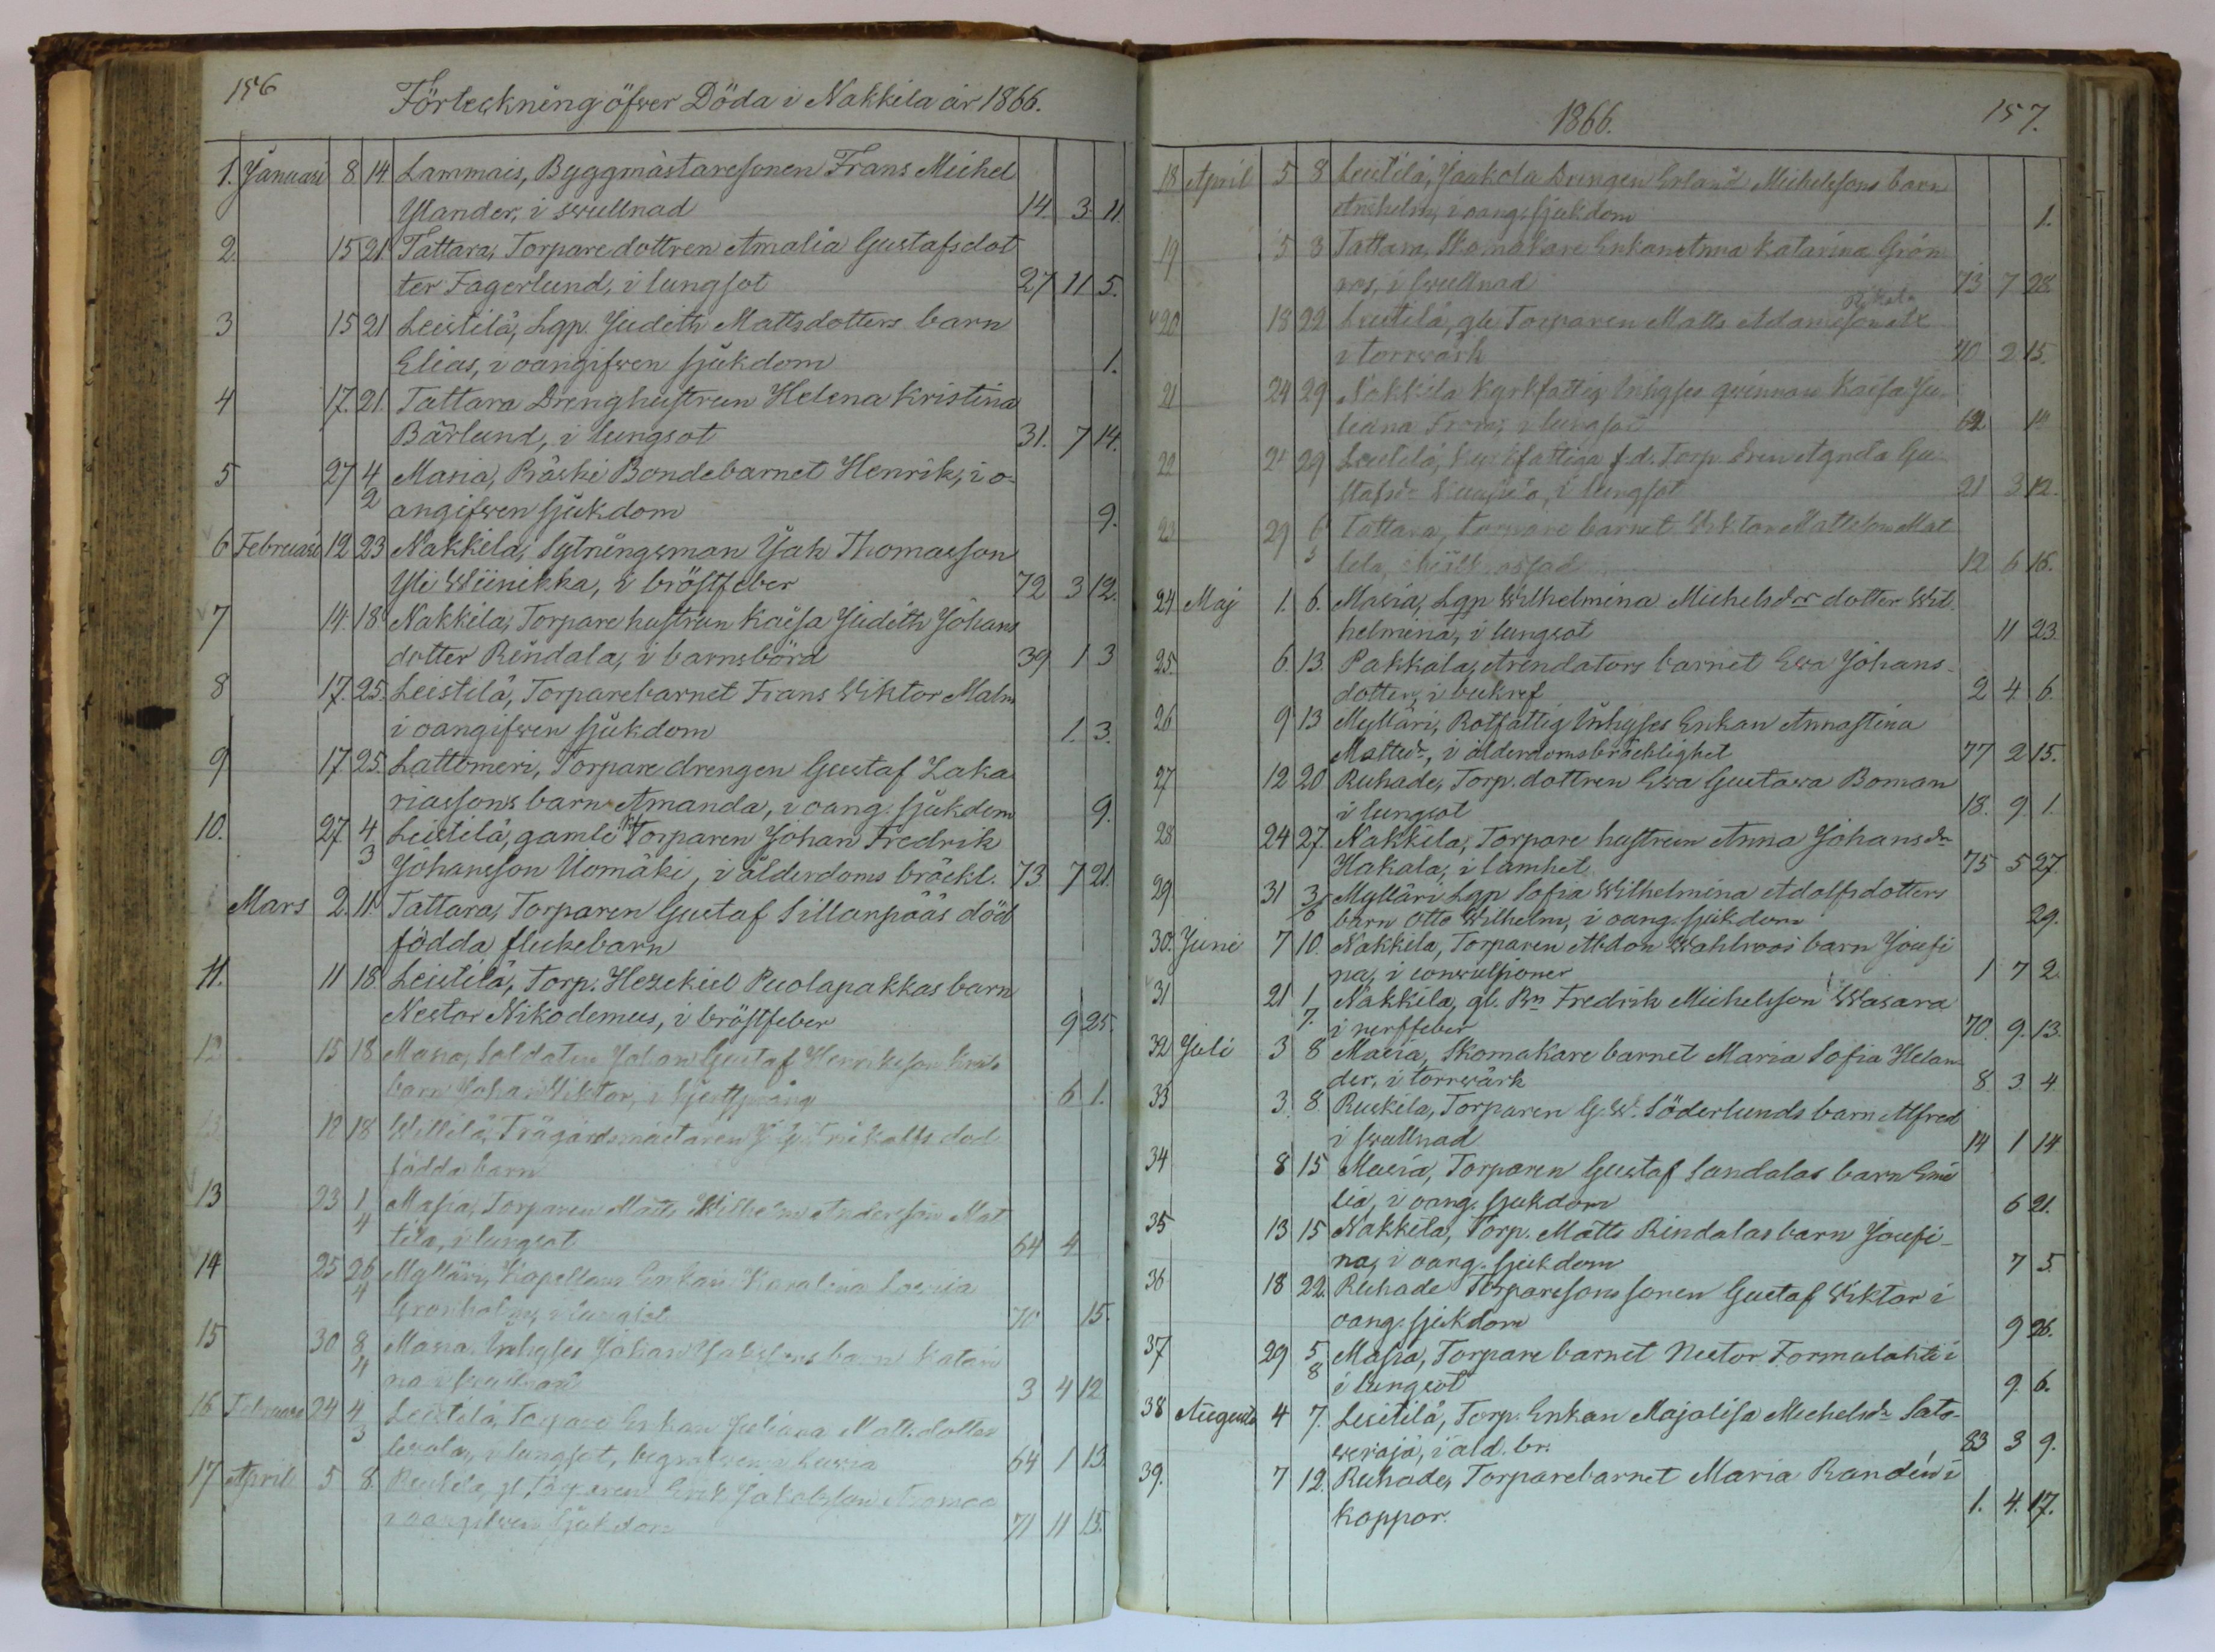 156
Förteckning öfver Döda i Nakkila år 1866.
1. Januari 8 14 Lammais, Byggmästaresonen Frans Michel
Ylander, i swullnad 14. 3. 11.
2. 15 21 Tattara, Torparedottren Amalia Gustafsdot
ter Fagerlund, i lungsot 27 11 5.
3 15 21 Leistilä, Lgp. Judith Mattsdotters barn
Elias, i oangifven sjukdom 1.
4 17. 21. Tattara Drenghustrun Helena Kristina
Bärlund, i lungsot 31. 7 14.
5 27 4 Masia, Räski Bondebarnet Henrik, i o-
2 angifven sjukdom 9.
6 Februari 12 23 Nakkila, Sytningsman Isak Thomasson
Yli Wiinikka, i bröstfeber 72 3 12.
7 14. 18 Nakkila, Torpare hustrun Kaisa Judith Johans
dotter Rindala, i barnsbörd 39 1 3
8 17. 25. Leistilä, Torparebarnet Frans Wiktor Malm
i oangifven sjukdom 1. 3.
9 17 25. Lattomeri, Torpare drengen Gustaf Zaka
riassons barn Amanda, i oang. sjukdom 9.
10. 27 4 Leistilä, gamle Torparen Johan Fredrik
3 Johansson Uomäki, i ålderdoms bräckl. 73 7 21.
Mars 2. 11. Tattara, Torparen Gustaf Sillanpääs död
födda flickebarn
11. 11 18 Leistilä, Torp. Hezekiel Puolapakkas barn
Nestor Nikodemus, i bröstfeber 9 25.
12. 15 18 Masia, Soldaten Johan Gustaf Henriksson
barn Johan Wiktor, i hjertsprång 6 1.
12 18 Willilä, Trägårdsmästaren död
födda barn
13 23 1 Masia, Torparen Matts Wilhelm Andersson Mat
4 tila, i lungsot 64 4
14 25 26 Mylläri, Kapellans Enkan Karolina Lovisa
4 Grönholm, i lungsot 70 15.
15 30 8 Masia Inhyses Johan barn Katari
4 na i swullnad 3 4 12
16 Februari 24 4 Leistilä, Torpare Enkan Juliana Mattsdotter
3 i lungsot, begrafven i 64 1 13
17 April 5 8. gl. Torparen Erik
i oangifven sjukdom 71 11 15.
1866. 157.
18 April 5 8 Leistilä, Jaakola Drengen Erland Michelssons barn
Anshelm, i oang. sjukdom 1.
19 5 8 Tattara, Skomakare Enkan Anna Katarina Grön
ros, i swullnad 73 7 28
20 18 22 Leistilä, gle Torparen Matts Adamsson
i torrwärk 40 2 15.
21 24 29 Nakkila Kyrkfattig Inhyses qvinnan Kaisa Ju
liana i lungsot 62
22 29 Leistilä, Kyrkfattiga f.d. Torp. Agnda Gu
stafsdr i lungsot 21 3 12.
23 29 6 Tattara, Torpare barnet Wiktor Mattsson Mat
5 tila, 12 6 16.
24 Maj 1. 6. Masia, Lgp Wilhelmina Michelsdrs dotter Wil
helmina, i lungsot 11 23.
25. 6. 13. Pakkala, Arendators barnet Ewa Johans-
dotter, i bukref 2 4 6.
26 9 13 Mylläri, Rotfattig Inhyses Enkan Annastina
Mattsdr, i ålderdomsbräcklighet 77 2 15.
27 12 20 Ruhade, Torp. dottren Ewa Gustava Boman
i lungsot 18. 9. 1.
28 24 27. Nakkila, Torpare hustrun Anna Johansdr
Hakala, i lamhet 75 5 27
29 31 3 Mylläri Lgp Sofia Wilhelmina Adolfsdotters
6 barn Otto Wilhelm, i oang. sjukdom 29.
30. Juni 7 10. Nakkila, Torparen Abdon Wahlroos barn Josefi
na, i convulsioner 1 7 2.
31 21 1 Nakkila, gl. Bn Fredrik Michelsson Wasara
7. i nerffeber 70. 9. 13.
32 Juli 3 8 Masia, Skomakare barnet Maria Sofia Helan
der, i torrwärk 8. 3. 4.
33 3. 8. Ruskila, Torparen G. W. Söderlunds barn Alfred
i swullnad 14 1 14
34 8 15 Masia, Torparen Gustaf Sandalas barn Emi
lia, i oang. sjukdom 6 21.
35 13 15 Nakkila, Torp. Matts Rindalas barn Josefi-
na, i oang. sjukdom 7 5.
36 18 22. Ruhade Torparesons sonen Gustaf Wiktor i
oang. sjukdom 9 26.
37 29 5 Masia, Torpare barnet Nestor Formulahti i
8 i lungsot 9. 6.
38 Augusti 4 7. Leistilä, Torp. Enkan Majalisa Michelsdr Sata-
weraja, i åld. br. 83 3 9.
39. 7 12. Ruhade, Torparebarnet Maria Randén i
koppor. 1. 4. 17.